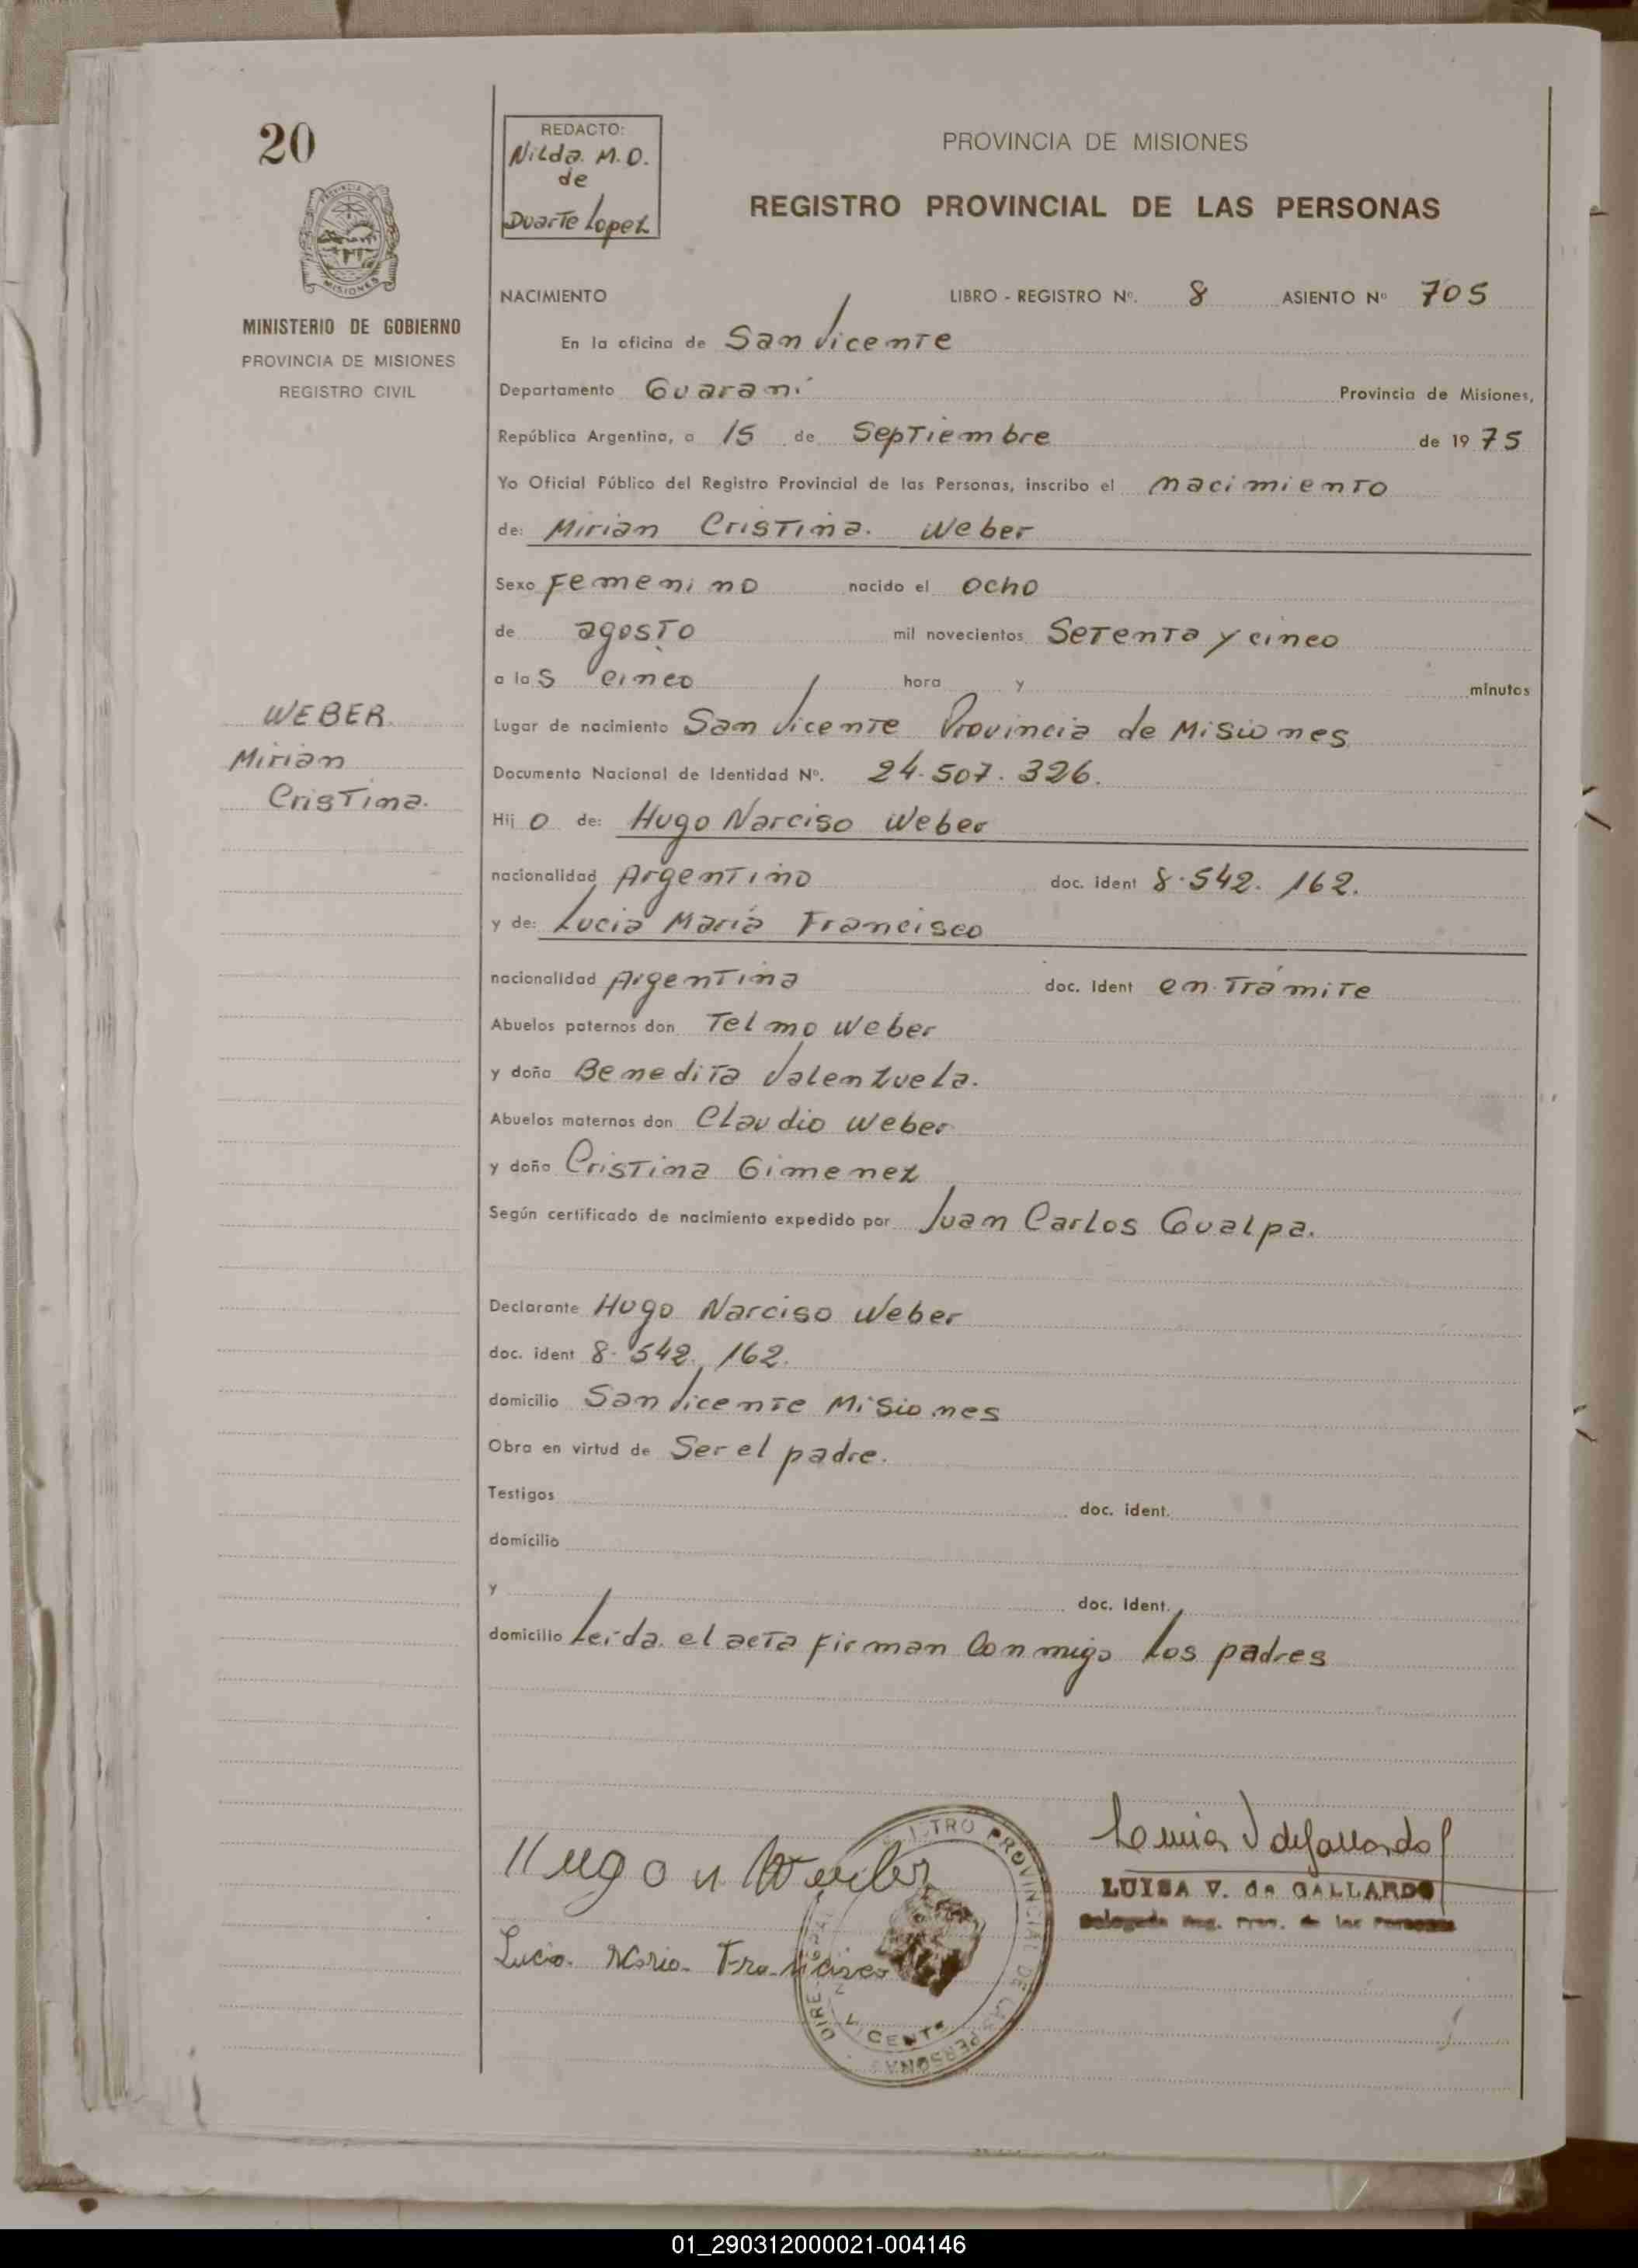 20
PROVINCIA DE
MISIONES
MINISTERIO DE GOBIERNO
PROVINCIA DE MISIONES
REGISTRO CIVIL
WEBER.
Mirian
Cristina.
REDACTO:
Nilda. M. D.
de
Duarte Lopez
PROVINCIA DE MISIONES
REGISTRO PROVINCIAL DE LAS PERSONAS
NACIMIENTO LIBRO - REGISTRO Nº. 8 ASIENTO Nº 705
En la oficina de San Vicente
Departamento Guaraní Provincia de Misiones,
República Argentina, a 15 de Septiembre de 1975
Yo Oficial Público del Registro Provincial de las Personas, inscribo el nacimiento
de: Mirian Cristina. Weber
Sexo Femenino nacido el ocho
de agosto mil novecientos Setenta y cinco
a las cinco hora y minutos
Lugar de nacimiento San Vicente Provincia de Misiones
Documento Nacional de Identidad Nº. 24.507.326.
Hijo de: Hugo Narciso Weber
nacionalidad Argentino doc. ident 8.542.162.
y de: Lucia María Francisco
nacionalidad Argentina doc. Ident en Trámite
Abuelos paternos don Telmo Weber
y doña Benedita Valenzuela.
Abuelos maternos don Claudio Weber
y doña Cristina Gimenez
Según certificado de nacimiento expedido por Juan Carlos Gualpa.
Declarante Hugo Narciso Weber
doc. ident 8.542.162.
domicilio San Vicente Misiones
Obra en virtud de Ser el padre.
Testigos doc. ident.
domicilio
y doc. Ident.
domicilio Leída el acta firman Conmigo los padres
Hugo n Weber
Lucia Maria Francisco
LUISA V. de GALLARDO
Delegada Reg. Prov. de las Personas
REGISTRO PROVINCIAL DE LAS PERSONAS
VICENTE
01_290312000021-004146